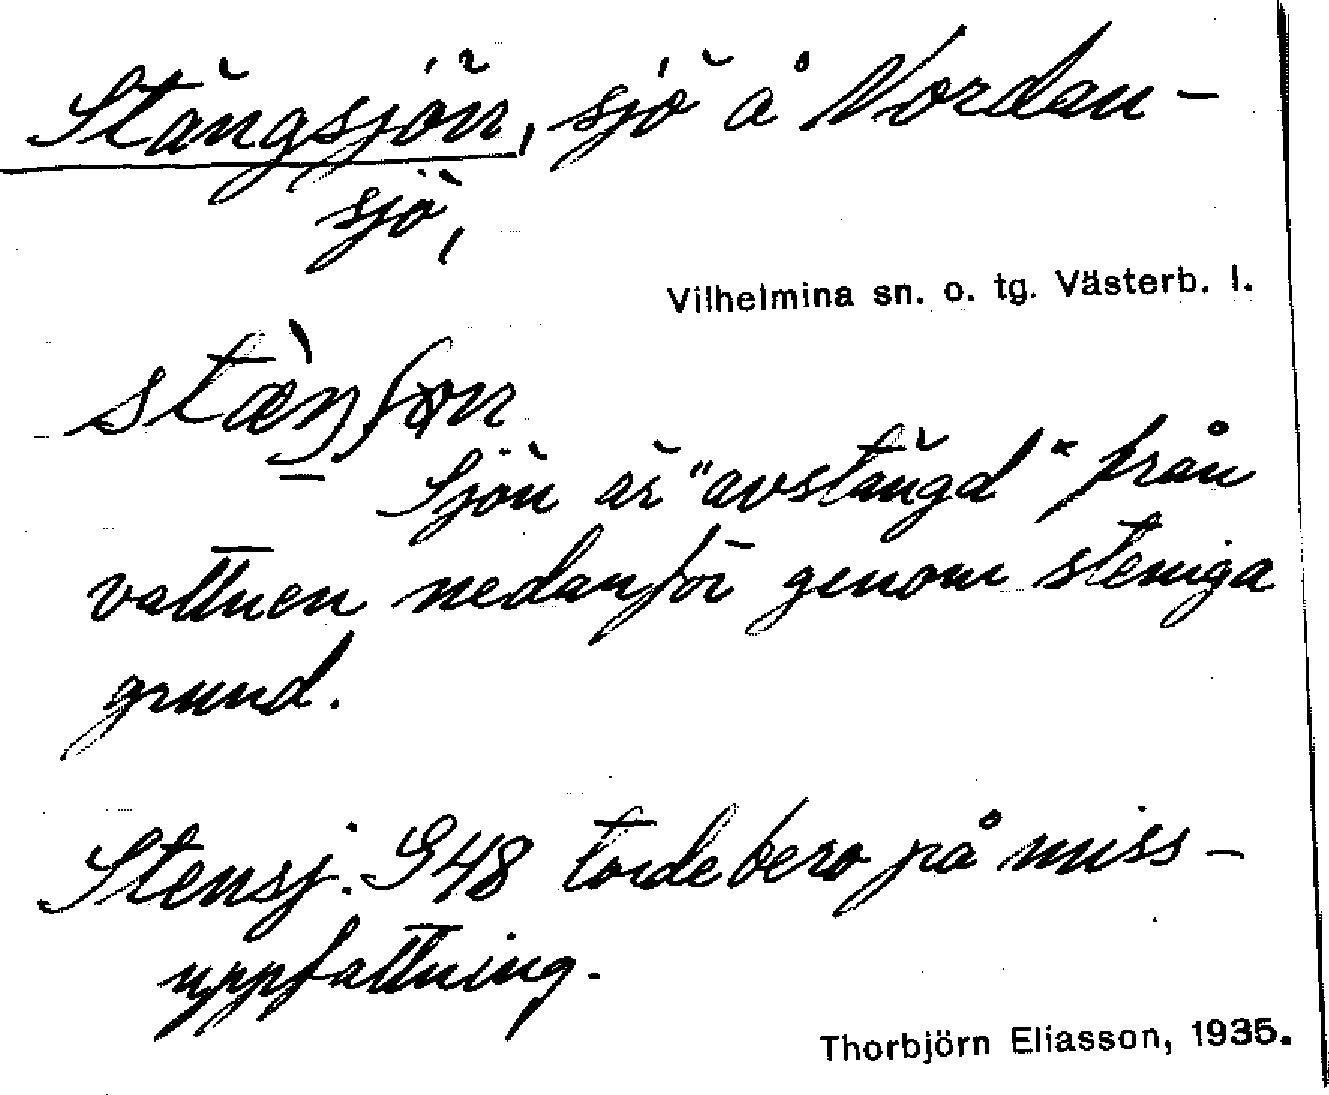 Stängsjön, sjö å Nordan-
sjö,
Vilhelmina sn. o. tg. Västerb. l.
stæ̀ŋʃøn
Sjön är "avstängd" från
vattnen nedanför genom steniga
grund.
Stensj. G48 torde bero på miss-
uppfattning.
Thorbjörn Eliasson, 1935.